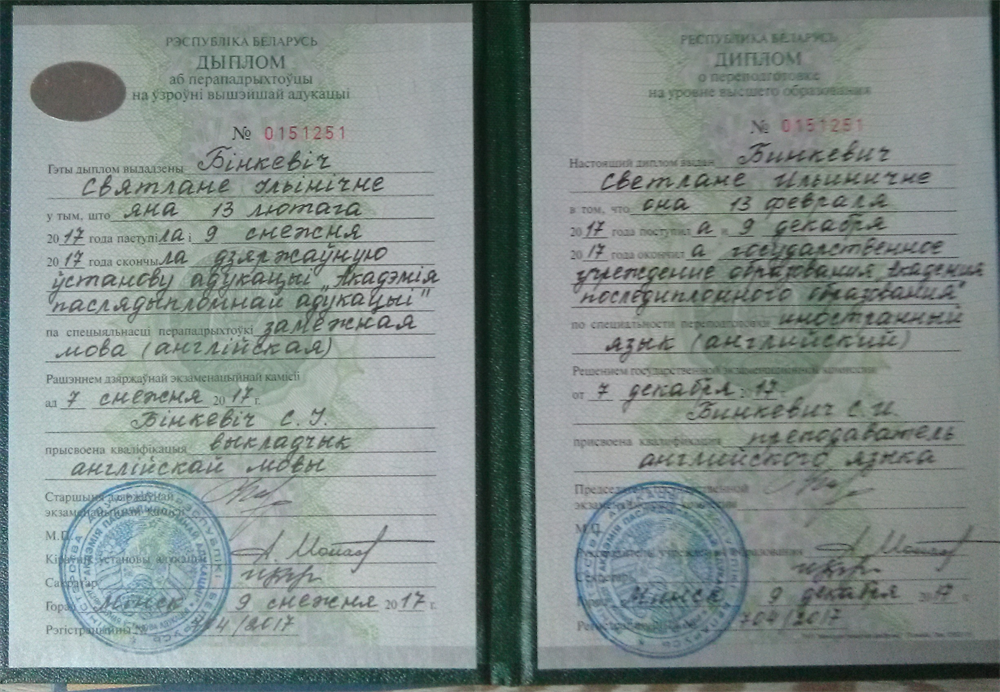 РЭСПУБЛІКА БЕЛАРУСЬ
ДЫПЛОМ
аб перападрыхтоўцы
на ўзроўні вышэйшай адукацыі
№ 0151251
Гэты дыплом выдадзены Бінкевіч
Святлане Ільінічне
у тым, што яна 13 лютага
2017 года паступіла і 9 снежня
2017 года скончыла дзяржаўную
ўстанову адукацыі „Акадэмія
паслядыпломнай адукацыі"
па спецыяльнасці перападрыхтоўкі замежная
мова (англійская)
Рашэннем дзяржаўнай экзаменацыйнай камісіі
ад 7 снежня 2017 г.
Бінкевіч С.І.
прысвоена кваліфікацыя выкладчык
англійскай мовы
Старшыня дзяржаўнай
экзаменацыйнай камісіі
М.П.
Кіраўнік установы адукацыі
Сакратар
Горад Мінск 9 снежня 2017 г.
Рэгістрацыйны № 704/2017
РЕСПУБЛИКА БЕЛАРУСЬ
ДИПЛОМ
о переподготовке
на уровне высшего образования
№ 0151251
Настоящий диплом выдан Бинкевич
Светлане Ильиничне
в том, что она 13 февраля
2017 года поступила и 9 декабря
2017 года окончила государственное
учреждение образования „Академия
последипломного образования"
по специальности переподготовки иностранный
язык (английский)
Решением государственной экзаменационной комиссии
от 7 декабря 2017 г.
Бинкевич С.И.
присвоена квалификация преподаватель
английского языка
Председатель государственной
экзаменационной комиссии
М.П.
Руководитель учреждения образования
Секретарь
Город Минск 9 декабря 2017 г.
Регистрационный № 704/2017